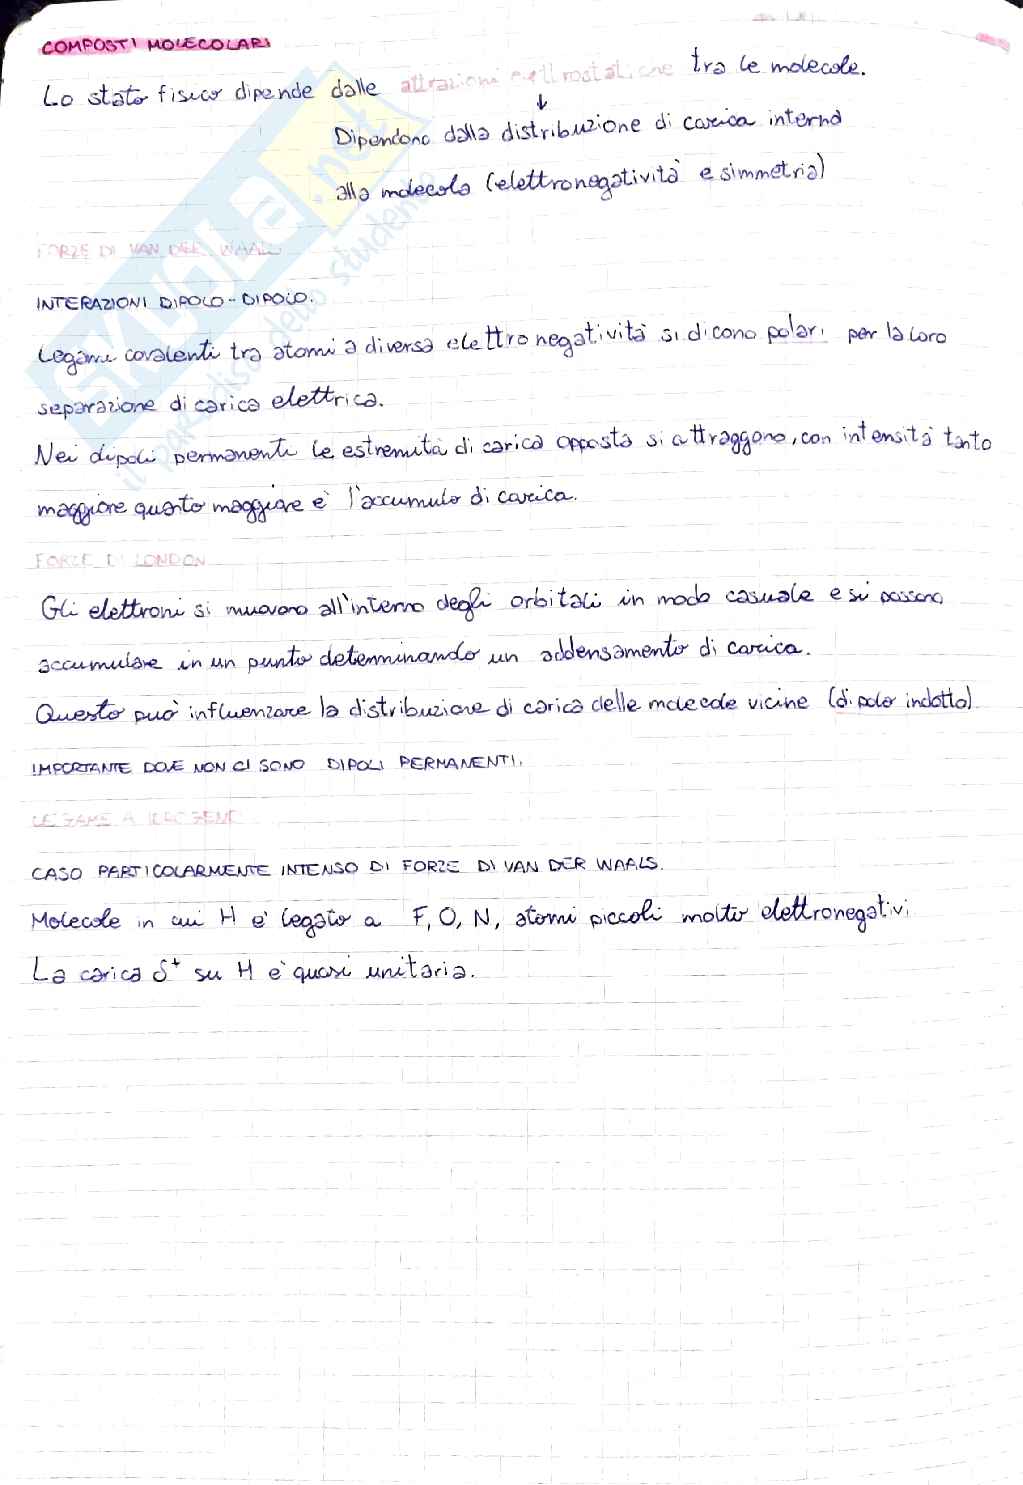 COMPOSTI MOLECOLARI
Lo stato fisico dipende dalle attrazioni elettrostatiche tra le molecole.
↓
Dipendono dalla distribuzione di carica interna
alla molecola (elettronegatività e simmetria)
FORZE DI VAN DER WAALS
INTERAZIONI DIPOLO-DIPOLO.
Legami covalenti tra atomi a diversa elettronegatività si dicono polari per la loro
separazione di carica elettrica.
Nei dipoli permanenti le estremità di carica opposta si attraggono, con intensità tanto
maggiore quanto maggiore è l'accumulo di carica.
FORZE DI LONDON
Gli elettroni si muovono all'interno degli orbitali in modo casuale e si possono
accumulare in un punto determinando un addensamento di carica.
Questo può influenzare la distribuzione di carica delle molecole vicine (dipolo indotto)
IMPORTANTE DOVE NON CI SONO DIPOLI PERMANENTI.
LEGAME A IDROGENO
CASO PARTICOLARMENTE INTENSO DI FORZE DI VAN DER WAALS.
Molecole in cui H è legato a F, O, N, atomi piccoli molto elettronegativi
La carica δ+ su H è quasi unitaria.
SKUOLA.net
il paradiso dello studente